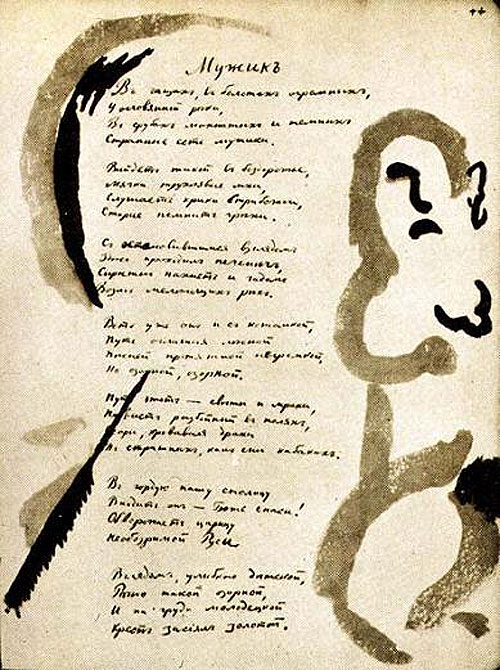 44
Мужикъ
Въ чащахъ, въ болотахъ огромныхъ,
У оловянной рѣки,
Въ срубахъ мохнатыхъ и темныхъ
Странные есть мужики.
Выйдетъ такой въ бездорожье,
Мягки трухлявые мхи,
Слушаетъ крики Стрибожьи,
Старые помнитъ
Съ остановившимся взглядомъ
Здѣсь проходилъ печенѣгъ,
Сыростью пахнетъ и гадомъ
Возлѣ мелѣющихъ рѣкъ.
Вотъ уже онъ и съ котомкой,
Путь оглашая лѣсной
Пѣсней протяжной негромкой,
Но озорной, озорной.
Путь этотъ — свѣты и мраки,
Посвистъ разбойный въ поляхъ,
Ссоры, кровавыя драки
Въ страшныхъ, какъ сны кабакахъ.
Въ гордую нашу столицу
Входитъ онъ — Боже спаси!
Обворожаетъ царицу
Необозримой Руси
Взглядомъ, улыбкою дѣтской,
Рѣчью такой озорной,
И на груди молодецкой
Крестъ засіялъ золотой.